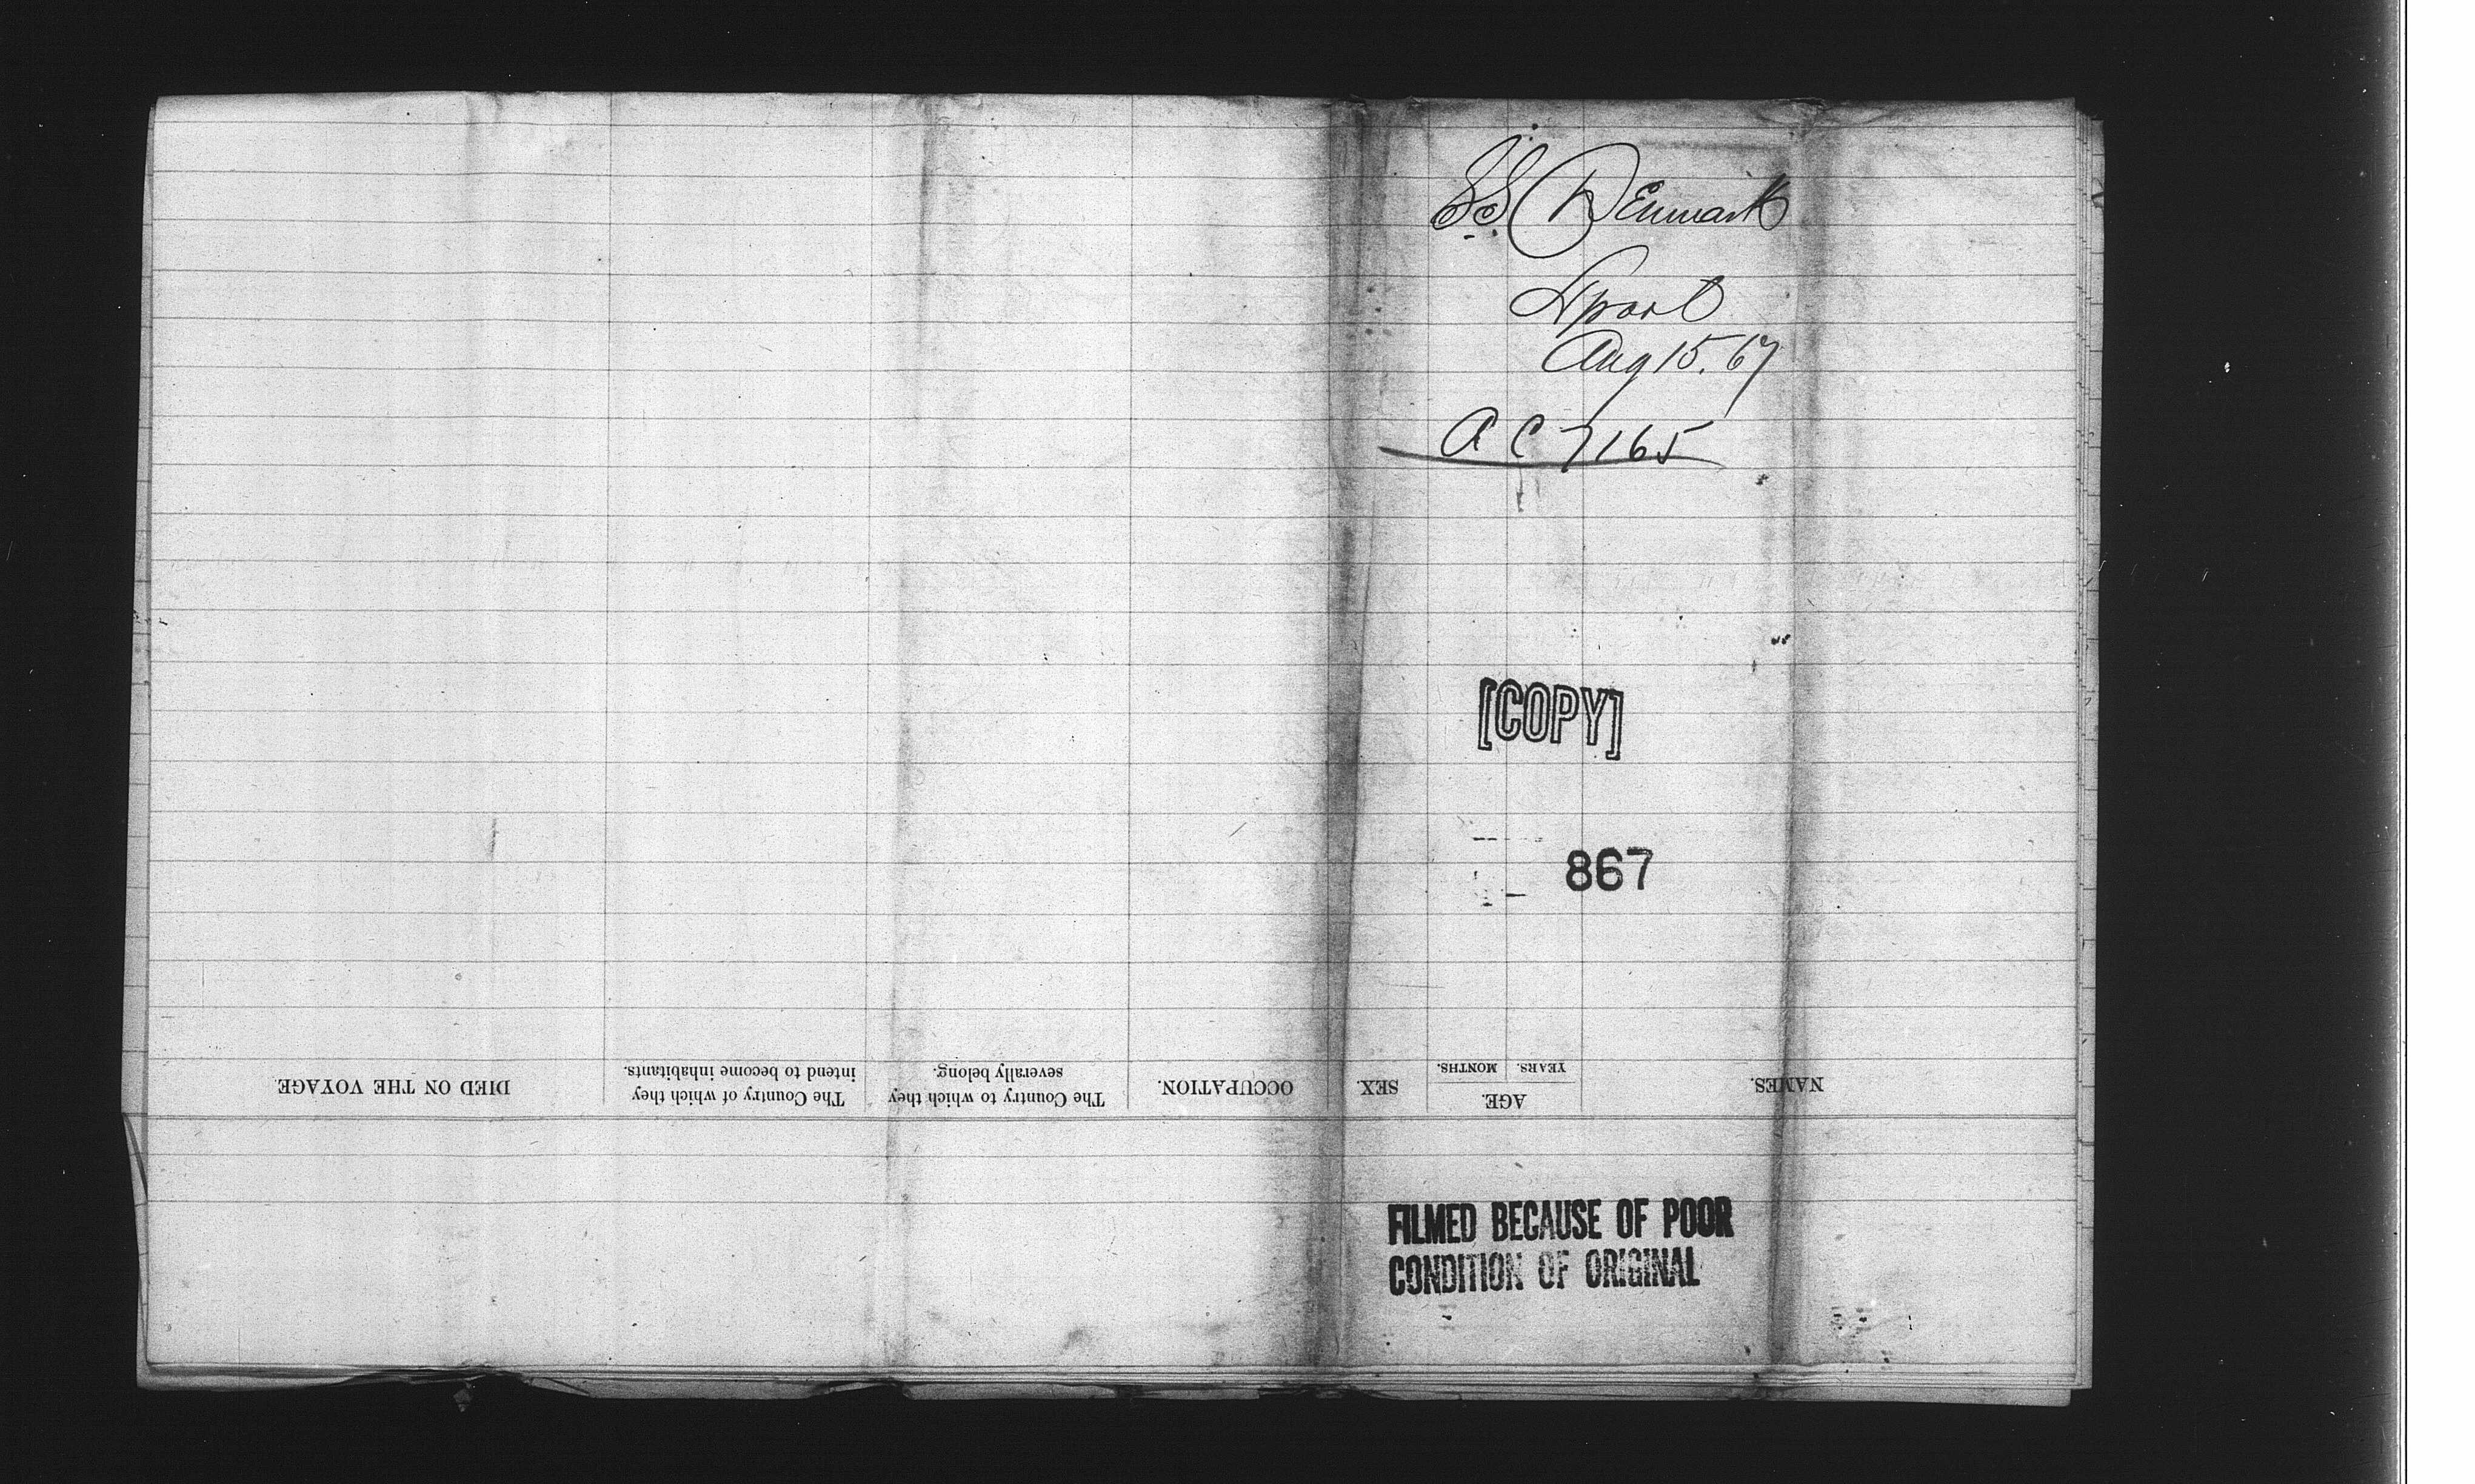 SS Denmark
Lpool
Aug 15. 67
A C 7165
[COPY]
867
FILMED BECAUSE OF POOR
CONDITION OF ORIGINAL
NAMES.
AGE.
YEARS.
MONTHS.
SEX.
OCCUPATION.
The Country to which they
severally belong.
The Country of which they
intend to become inhabitants.
DIED ON THE VOYAGE.